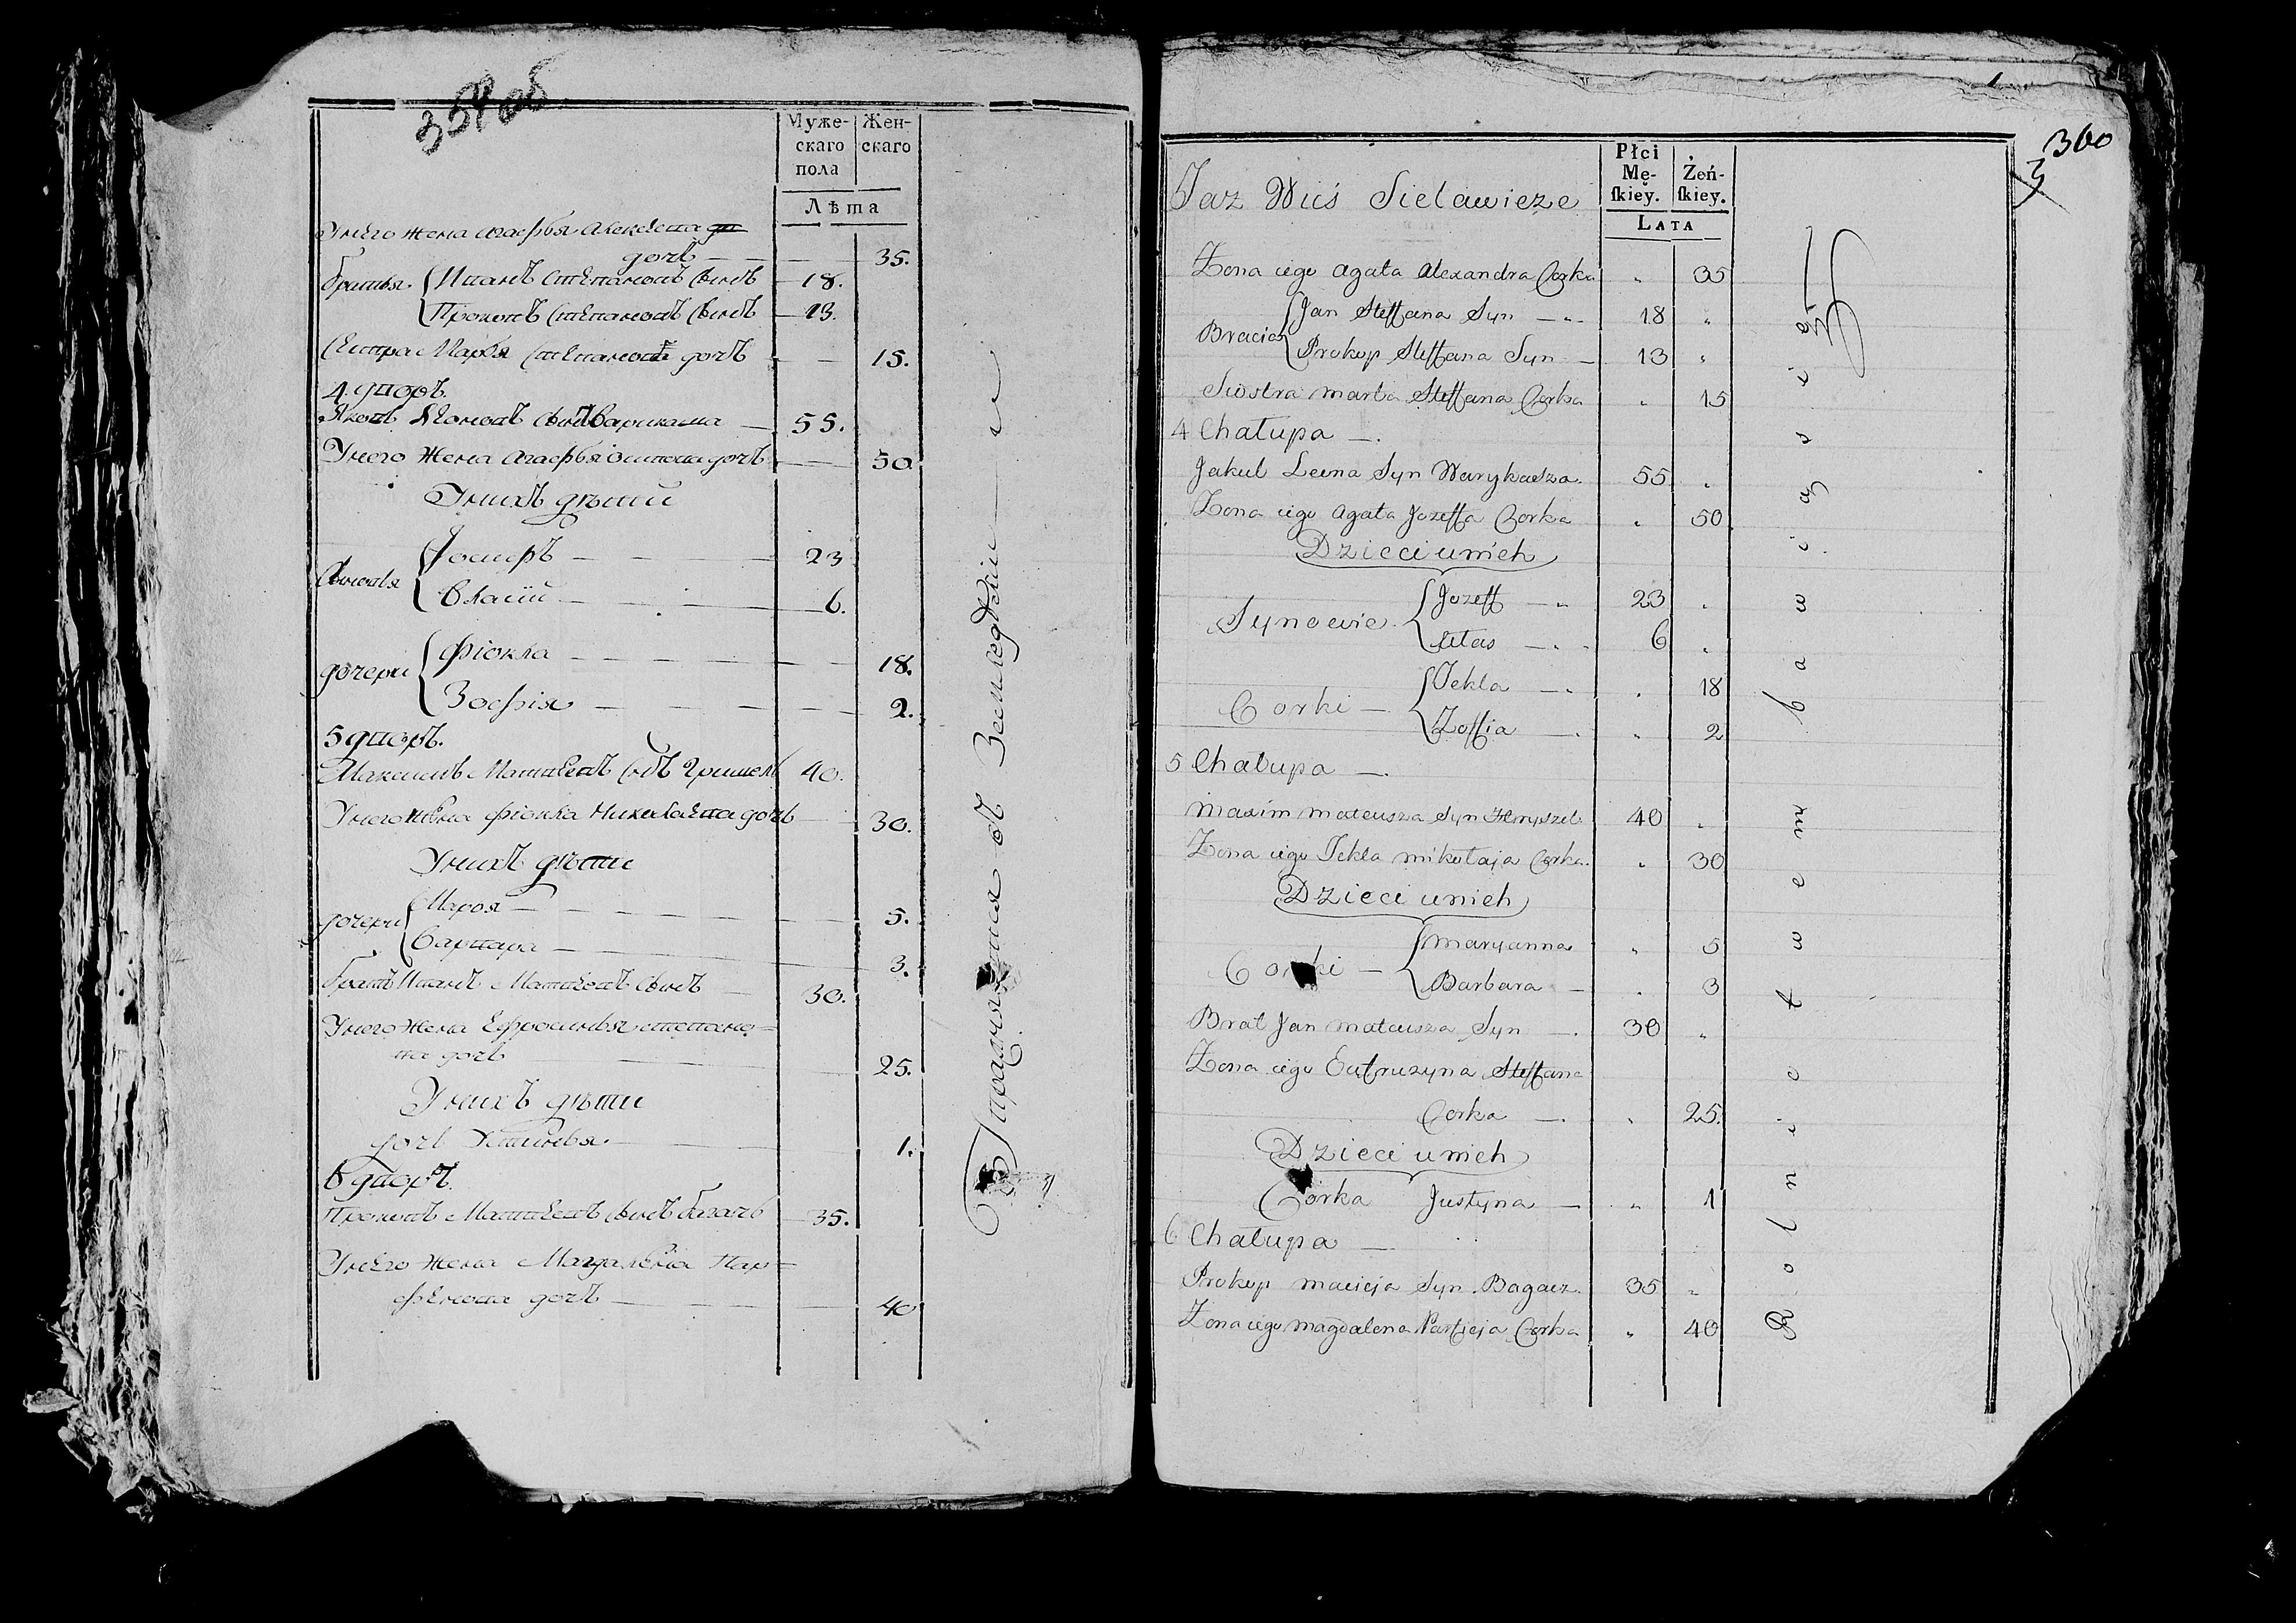 359 об
Муже-
скаго
пола
Жен-
скаго
Лѣта
Унего жена Агафья Алексѣева
дочь — — — 35.
братья { Иванъ Степановъ сынъ — 18.
Прокопъ Степановъ сынъ — 13.
Сестра Марья Степанова дочь — — 15.
4. дворъ.
Яковъ Леоновъ сынъ Варикаша — 55.
Унего жена Агафья Осипова дочь — 50
Унихъ дѣти
сыновья { Іосифъ — — — 23
Власій — — — 6.
дочери { Фіокла — — — 18.
Зофія — — — 2.
5 дворъ.
Максимъ Матвѣевъ снъ Гришель 40.
Унего жена Фіокла Николаева дочь — 30.
Унихъ дѣти
дочери { Марья — — — 5.
Варвара — — — 3.
братъ Иванъ Матвѣевъ сынъ — 30.
Унего жена Ефросинья Степано=
ва дочь — 25.
Унихъ дѣти
дочь Устинья — 1.
6 дворъ.
Прокопъ Матвѣевъ сынъ Багачъ — 35.
Унего жена Магдалена Пар=
фенова дочь — — 40
Упражняются въ Земледѣліи
360
3
Taz Wieś Sielawicze
Płci
Mę-
skiey.
Żeń-
skiey.
Lata
Zona iego Agata Alexandra Corka „ 35
Bracia { Jan Steffana Syn — 18 „
Prokop Steffana Syn — 13 „
Siostra Marta Steffana Corka „ 15
4 Chałupa —.
Jakub Leona Syn Warykasza. 55 „
Zona iego Agata Jozeffa Corka „ 50
Dzieci unich
Synowie { Jozeff — 23 „
Ułas — 6 „
Corki — { Tekla — „ 18
Zoffia — „ 2
5 Chałupa —.
Maxim Mateusza Syn Hryszel 40 „
Zona iego Tekla Mikołaja Corka. „ 30
Dzieci unich
Corki — { Maryanna „ 5
Barbara — „ 3
Brat Jan Mateusza Syn —. 30 „
Zona iego Eufruzyna Steffana
Corka —. „ 25.
Dzieci unich
Corka Justyna — „ 1
6 Chałupa —
Prokop Macieja Syn Bagacz. 35 „
Zona iego Magdalena Parfieja Corka „ 40
Rolnictwem bawią się